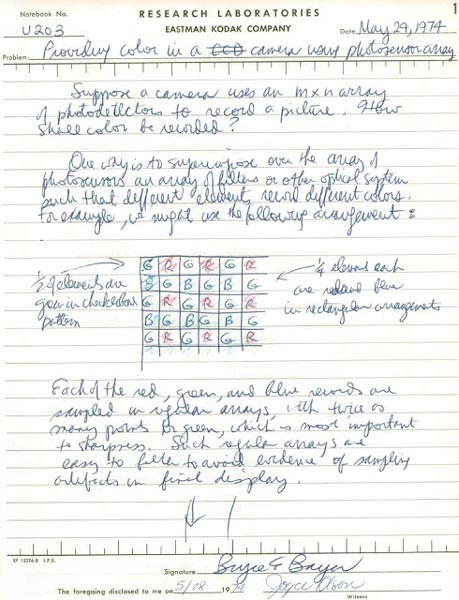 1
Notebook No.
RESEARCH LABORATORIES
U203
EASTMAN KODAK COMPANY
Date May 29, 1974
Problem: Providing color in a CCD camera using photosensor array
Suppose a camera uses an m x n array
of photodetectors to record a picture. How
shall color be recorded?
One way is to superimpose over the array of
photosensors an array of filters or other optical system
such that different elements record different colors.
For example, we might use the following arrangement:
G R G R G R
B G B G B G
G R G R G R
B G B G B G
G R G R G R
1/2 of elements are
green in checkerboard
pattern
1/4 elements each
are red and blue
in rectangular arrangements
Each of the red, green, and blue records are
sampled in regular arrays, with twice as
many points for green, which is most important
to sharpness. Such regular arrays are
easy to filter to avoid evidence of sampling
artifacts in final display.
KP 13226-B I.P.S.
Signature Bryce E Bayer
The foregoing disclosed to me on 5/28 1974 Joyce Olson
Witness